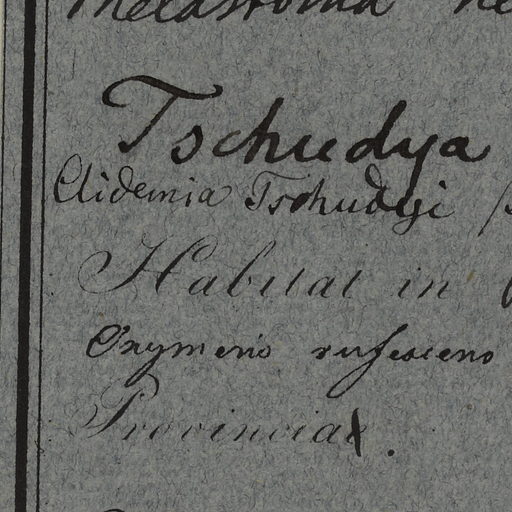 Melastoma
Tschudya
Clidemia Tschudyi
Habitat in
Oxymeris rufescens
Provincia.